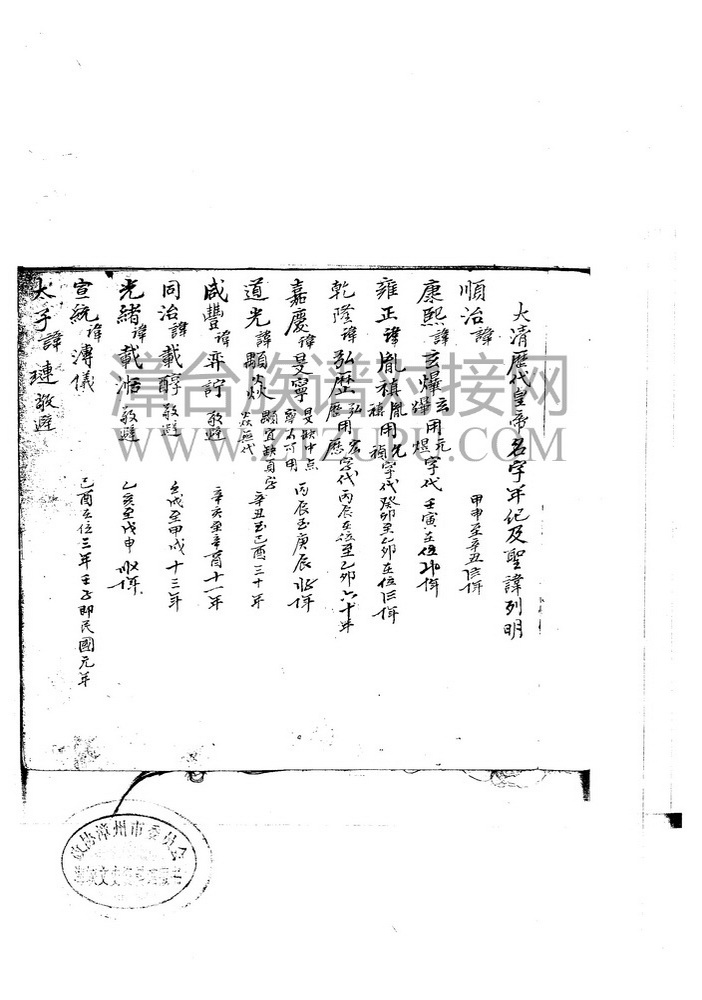 大清歷代皇帝名字年紀及聖諱列明
順治諱 甲申至辛丑 年
康熙諱玄燁 玄用元 燁 煜字代 壬寅在位 年
雍正諱胤禛 胤用允 禛 禎字代 癸卯至乙卯在位 年
乾隆諱弘歷 弘 宏 歷用應字代 丙辰在位至乙卯六十年
嘉慶諱旻寧 旻缺中点 寧不可用 丙辰至庚辰 年
道光諱顒焱 顒宜缺頁字 焱無代 辛丑至己酉三十年
咸豐諱奕詝 敬避 辛亥至辛酉十一年
同治諱載醇 敬避 壬戌至甲戌十三年
光緒諱載湉 敬避 乙亥至戊申 年
宣統諱溥儀 己酉在位三年壬子即民國元年
太子諱璉敬避
漳台族谱对接网
WWW.ZTZUPU.COM
政协漳州市委员会